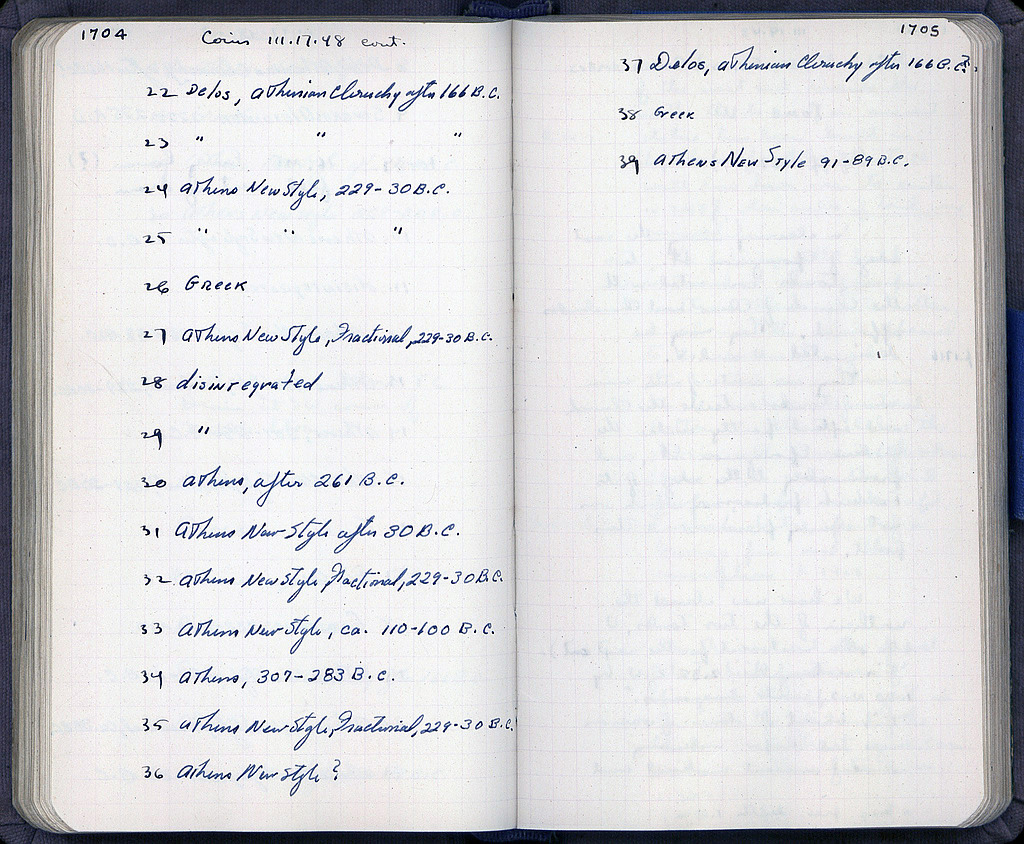 1704
Coins III.17.48 cont.
22 Delos, Athenian Cleruchy after 166 B.C.
23 " " "
24 Athens New Style, 229-30 B.C.
25 " " "
26 Greek
27 Athens New Style, Fractional, 229-30 B.C.
28 disintegrated
29 "
30 Athens, after 261 B.C.
31 Athens New Style after 30 B.C.
32 Athens New Style Fractional, 229-30 B.C.
33 Athens New Style, ca. 110-100 B.C.
34 Athens, 307-283 B.C.
35 Athens New Style, Fractional, 229-30 B.C.
36 Athens New Style ?
1705
37 Delos, Athenian Cleruchy after 166 B.C.?
38 Greek
39 Athens New Style 91-89 B.C.